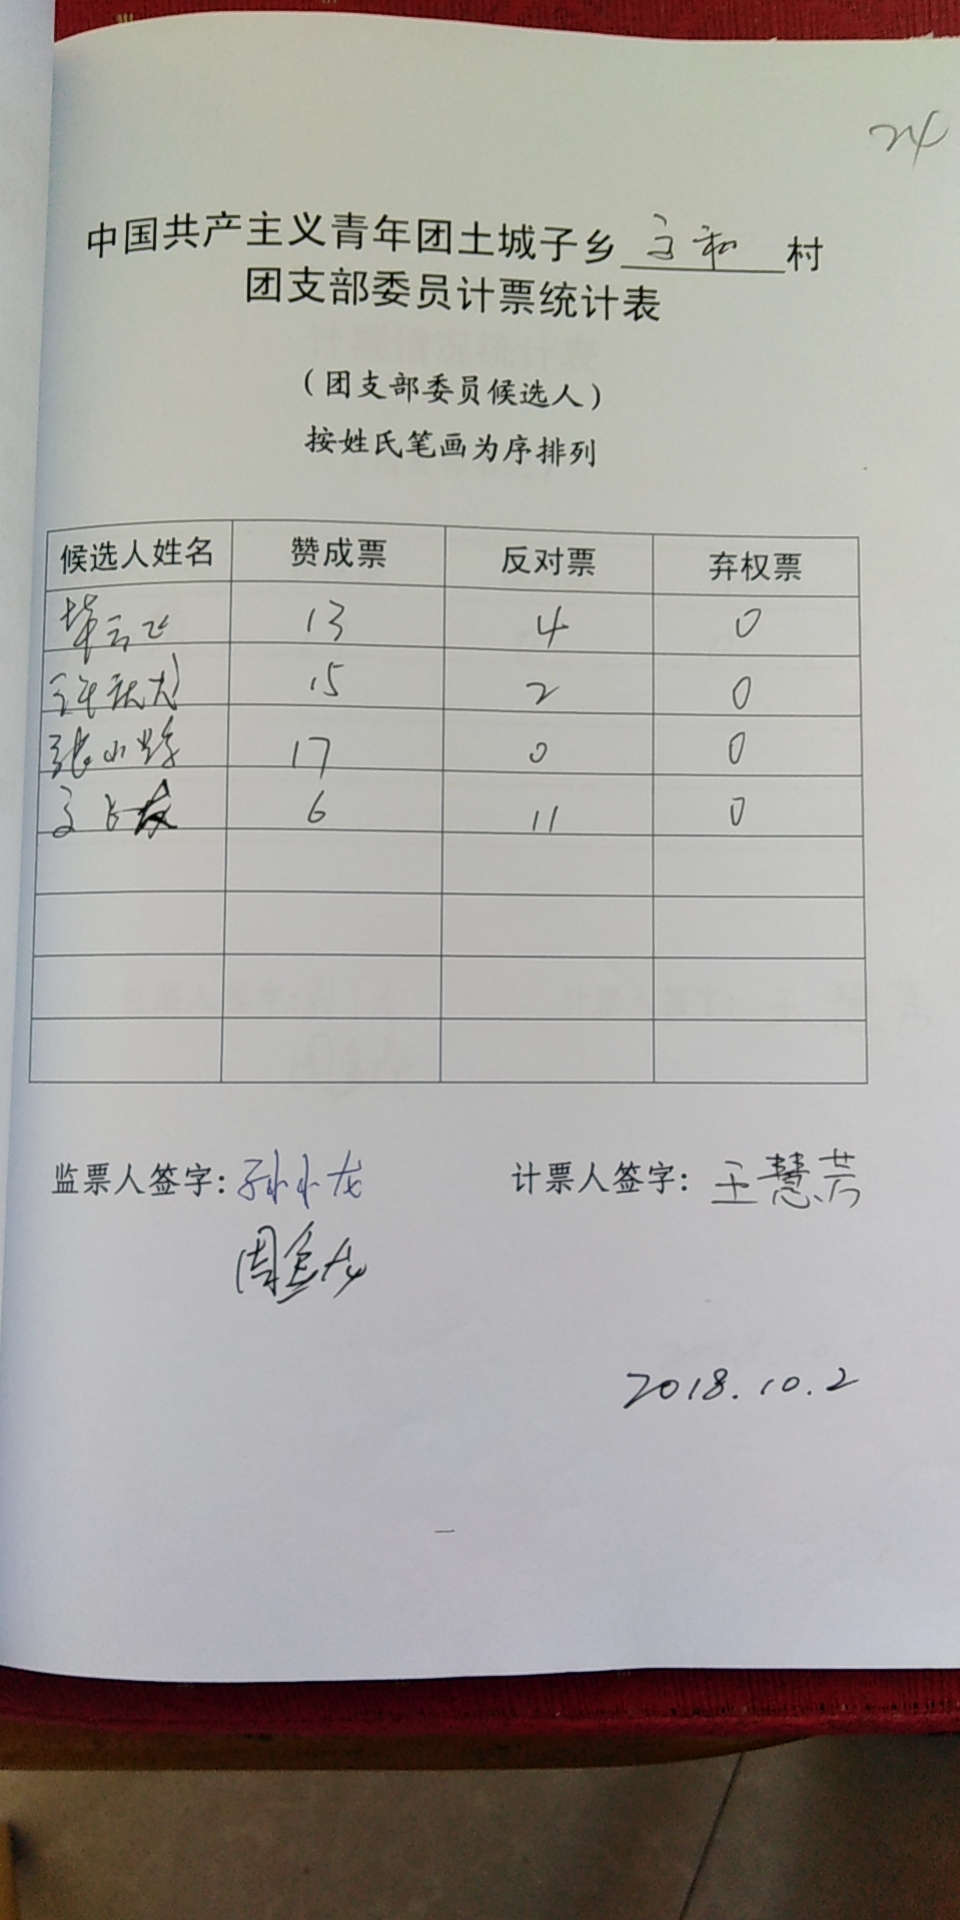 24
中国共产主义青年团土城子乡 村
团支部委员计票统计表
（团支部委员候选人）
按姓氏笔画为序排列
候选人姓名 赞成票 反对票 弃权票
13 4 0
15 2 0
张小 17 0 0
6 11 0
监票人签字：孙小龙 计票人签字：王慧芳
周金龙
2018.10.2
一